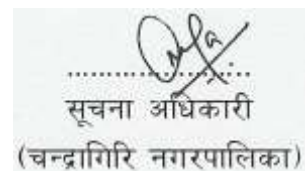 ....................
सूचना अधिकारी
(चन्द्रागिरि नगरपालिका)